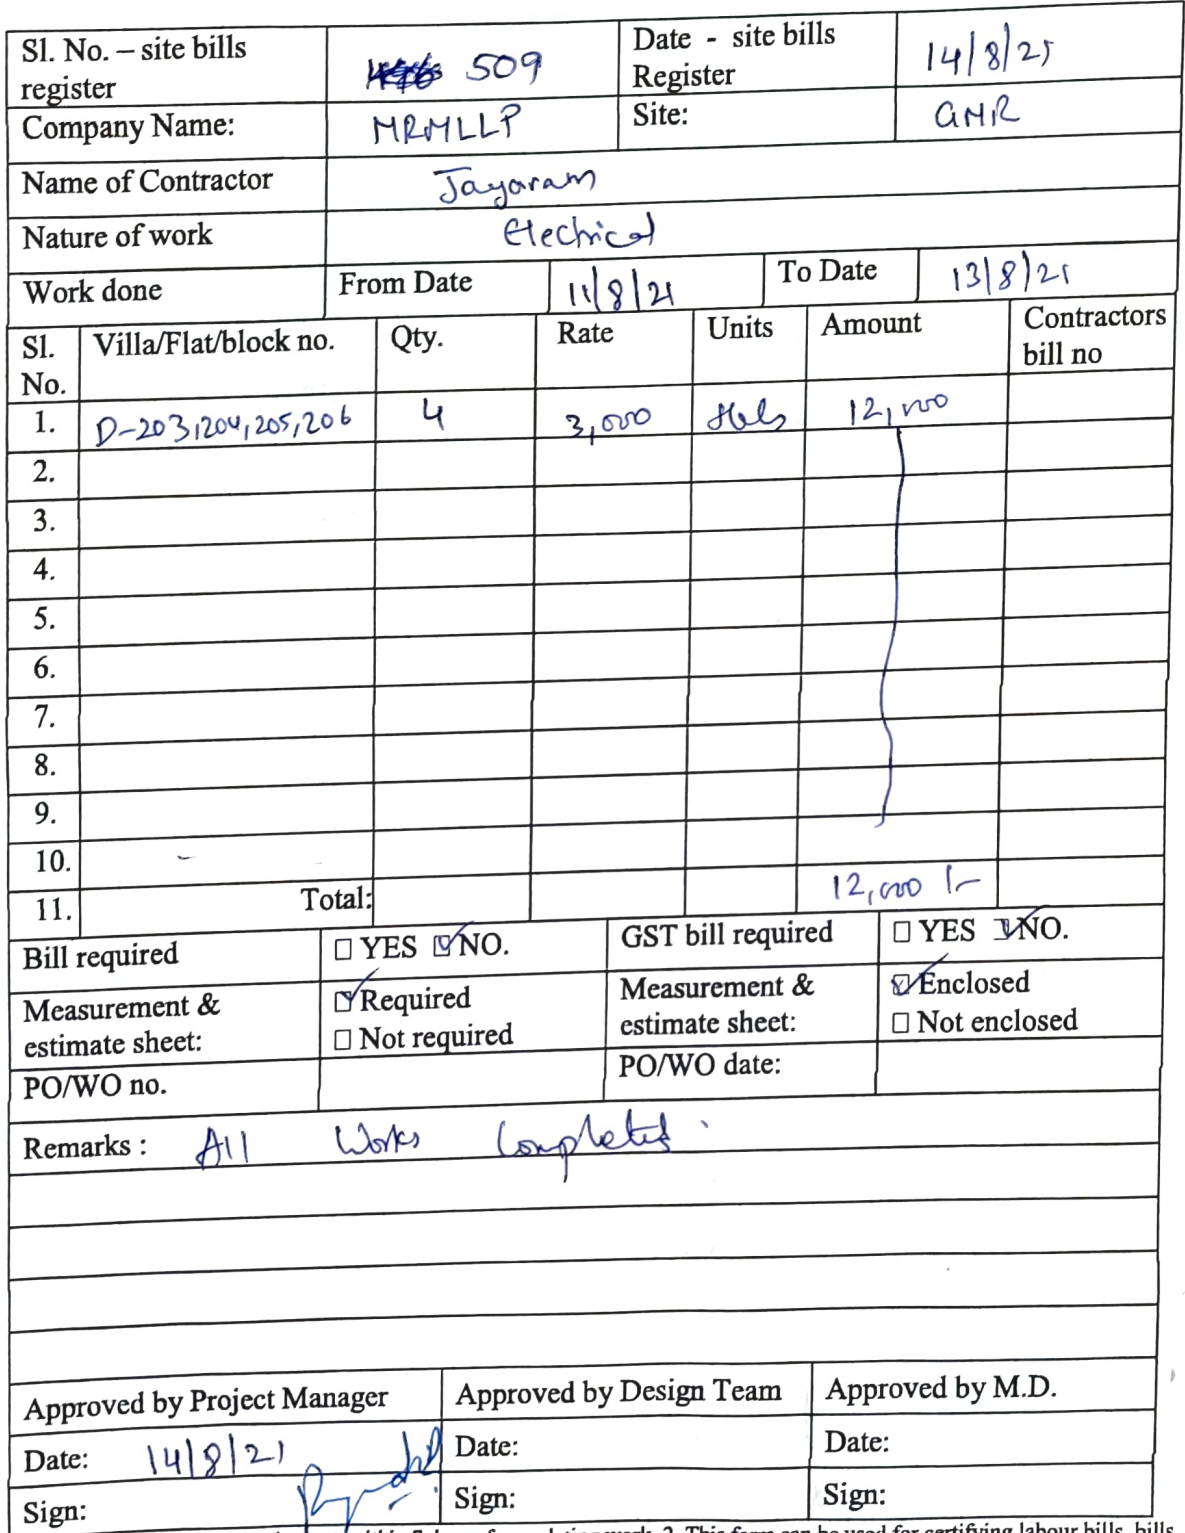 Sl. No. – site bills register 509 Date - site bills Register 14/8/21
Company Name: MRMLLP Site: GMR
Name of Contractor Jayaram
Nature of work Electrical
Work done From Date 11/8/21 To Date 13/8/21
Sl. No. Villa/Flat/block no. Qty. Rate Units Amount Contractors bill no
1. D-203,204,205,206 4 3,000 12,000
2.
3.
4.
5.
6.
7.
8.
9.
10.
11. Total: 12,000 /-
Bill required ☐ YES ☑ NO. GST bill required ☐ YES ☑ NO.
Measurement & estimate sheet: ☑ Required Measurement & estimate sheet: ☑ Enclosed
☐ Not required ☐ Not enclosed
PO/WO no. PO/WO date:
Remarks : All Works Completed.
Approved by Project Manager Approved by Design Team Approved by M.D.
Date: 14/8/21 Date: Date:
Sign: Sign: Sign:
This form can be used for certifying labour bills, bills